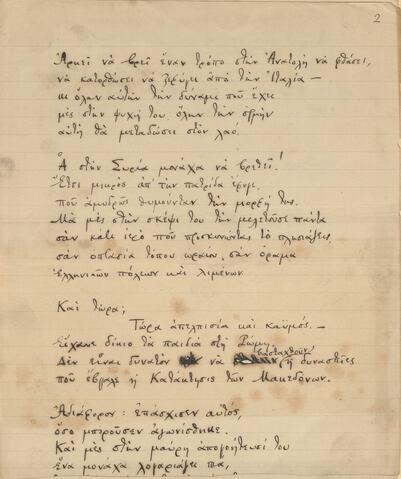 2
Ἀρκεῖ νὰ βρεῖ ἕναν τρόπο στὴν Ἀνατολὴ νὰ φθάσει,
νὰ κατορθώσει νὰ ξεφύγει ἀπὸ τὴν Ἰταλία —
κι ὅλην αὐτὴν τὴν δύναμι ποῦ ἔχει
μὲς στὴν ψυχή του, ὅλην τὴν ὁρμὴν
αὐτὴ θὰ μεταδώσει στὸν λαό.
Ἆ στὴν Συρία μονάχα νὰ βρεθεῖ!
Ἔτσι μικρὸς ἀπ' τὴν πατρίδα ἔφυγε
ποῦ ἀμυδρῶς θυμούνταν τὴν μορφή της.
Μὰ μὲς στὴν σκέψι του τὴν μελετοῦσε πάντα
σὰν κάτι ἱερὸ ποῦ προσκυνῶντας τὸ πλησιάζεις,
σὰν ὀπτασία τόπου ὡραίου, σὰν ὅραμα
ἑλληνικῶν πόλεων καὶ λιμένων.
Καὶ τώρα;
Τώρα ἀπελπισία καὶ καϋμός. —
Εἴχανε δίκιο τὰ παιδιὰ στὴ Ρώμη.
Δὲν εἶναι δυνατὸν νὰ βασταχθοῦν ἡ δυναστεῖες
ποῦ ἔβγαλε ἡ Κατάκτησις τῶν Μακεδόνων.
Ἀδιάφορον: ἐπάσχισεν αὐτός,
ὅσο μποροῦσεν ἀγωνίσθηκε.
Καὶ μὲς στὴν μαύρη ἀπογοήτευσί του
ἕνα μονάχα λογαριάζει πιά,